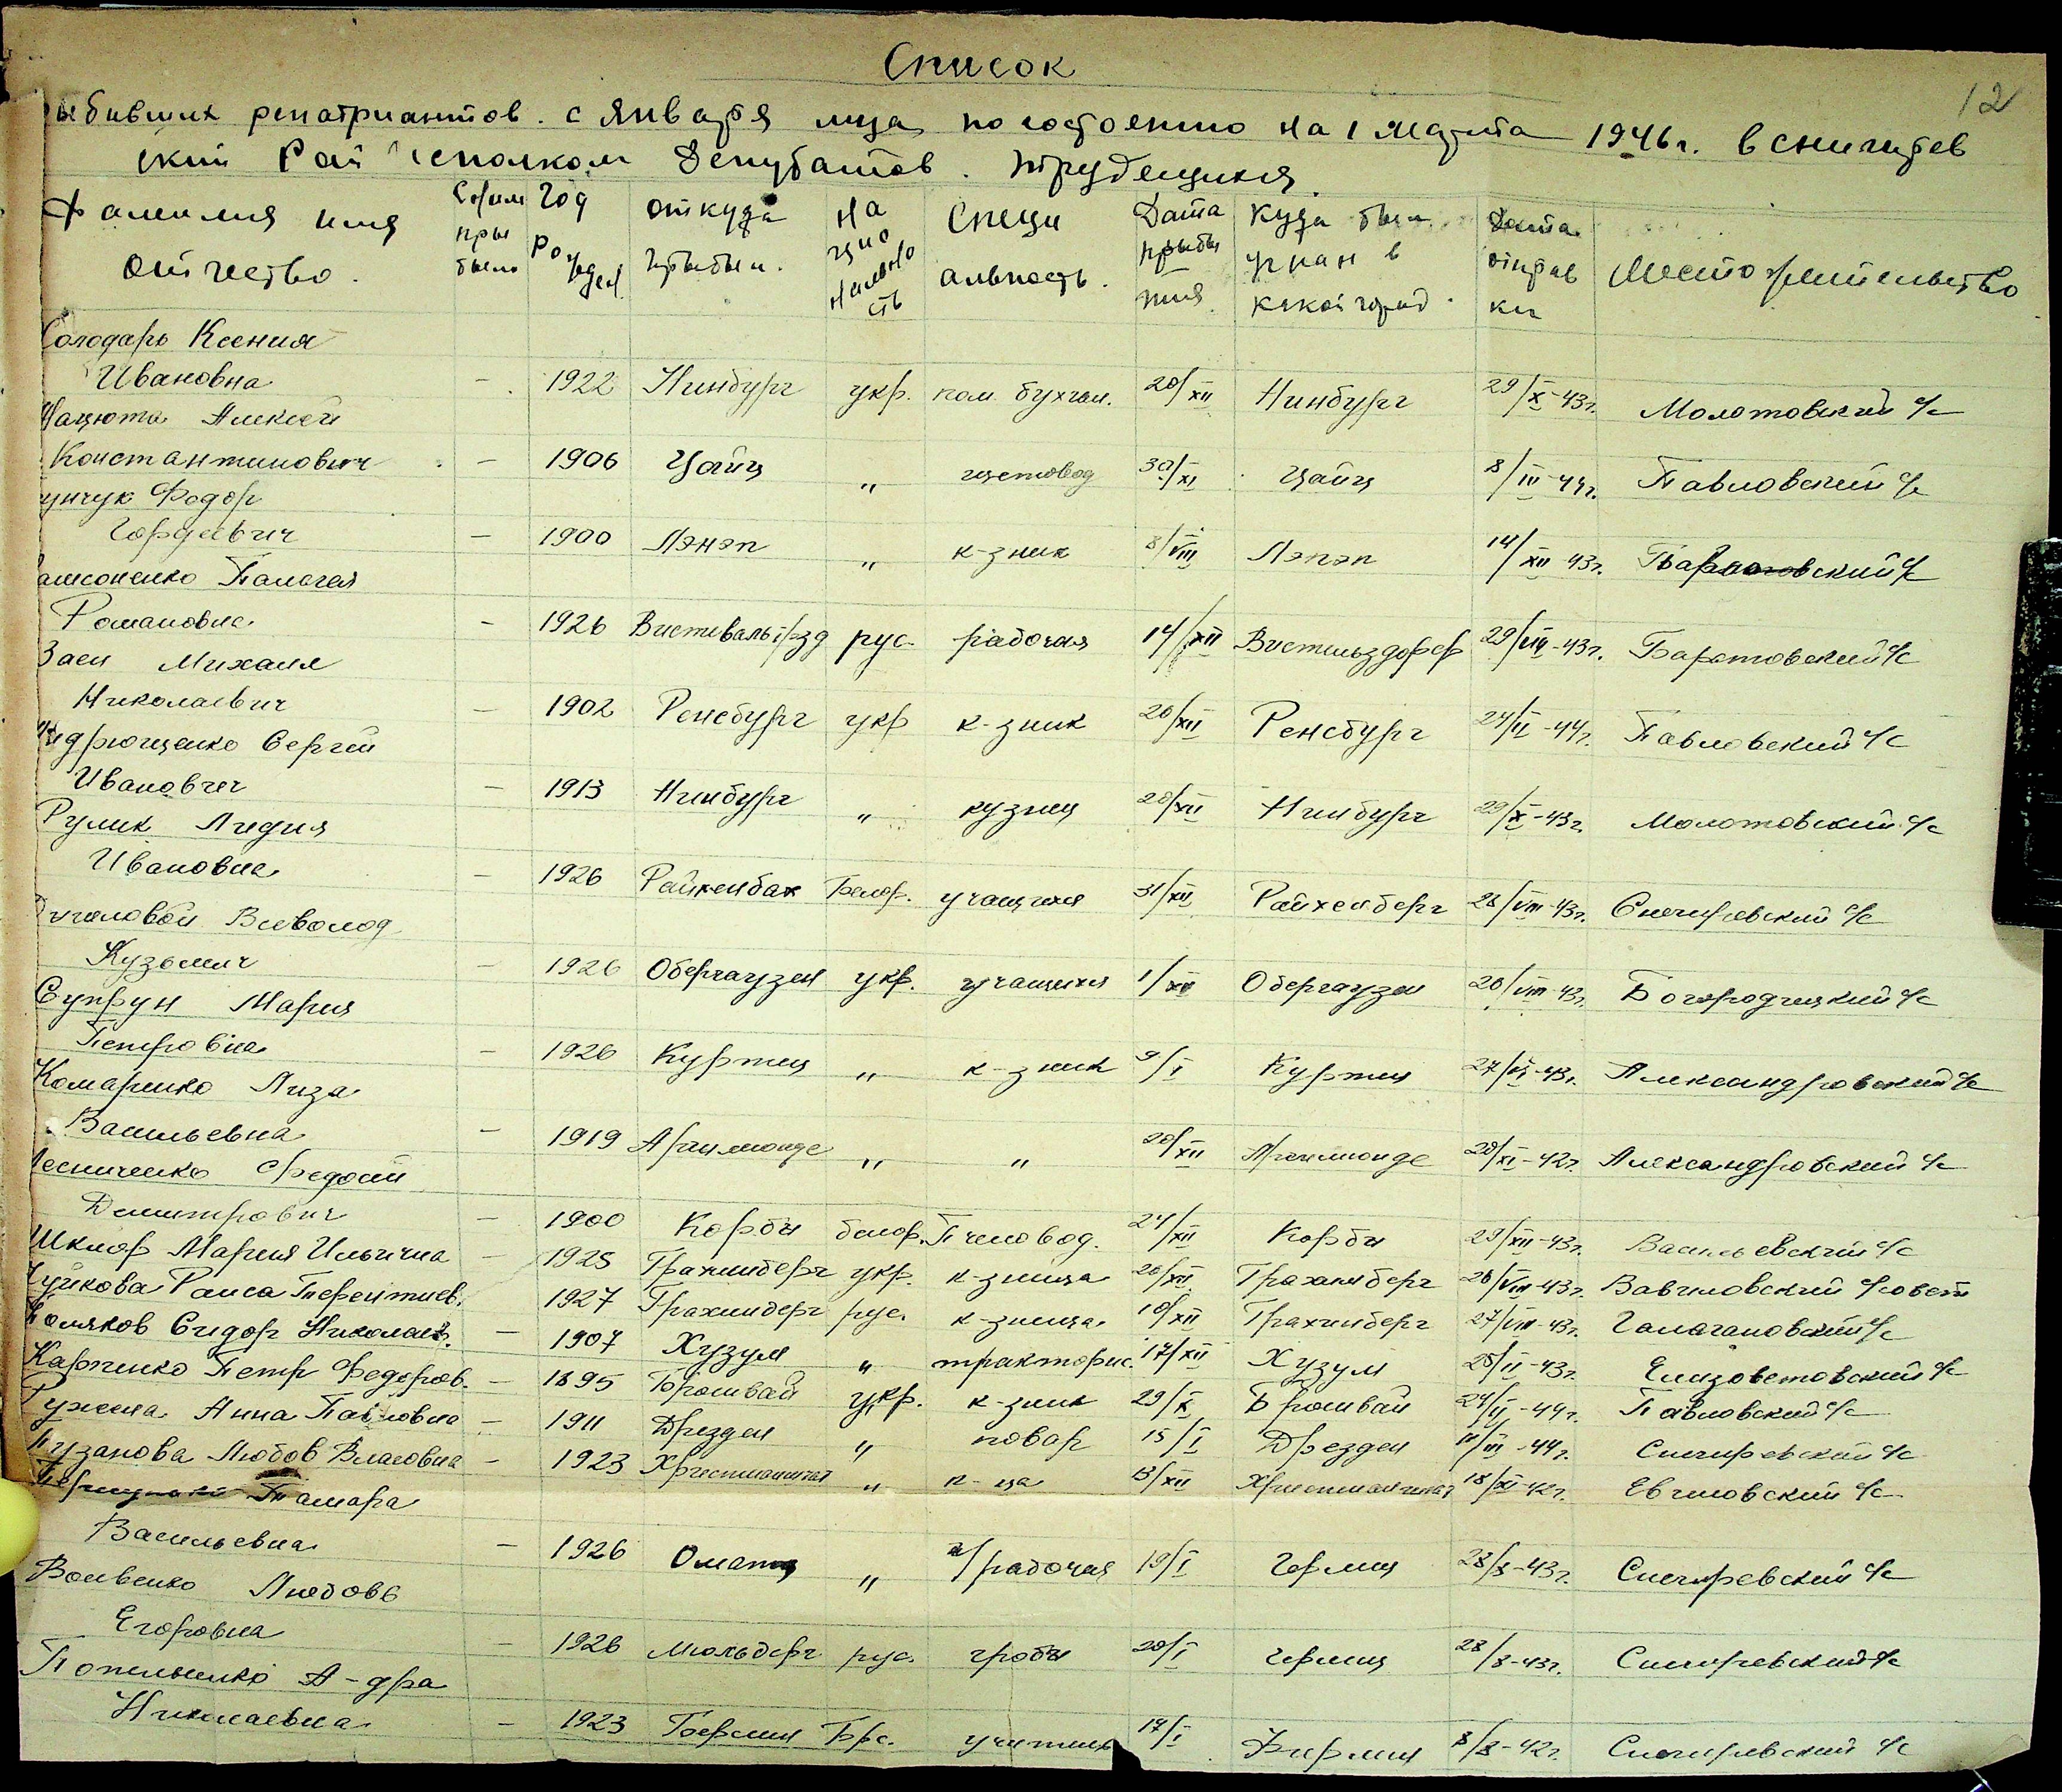 Список
12
ыбивших репатриантов. с января м-ца по состоянию на 1 марта 1946 г. в снигирев
ский Рай исполком Депутатов трудещихся.
Фамилия имя отчество. Год рожден откуда прибыл. На цио нально сть Специ альность. Дата прибы тия. Куда был угнан в какой город. Дата отправ ки Место жительство
Солодарь Ксения
Ивановна - 1922 Нинбург укр. пом. бухгал. 20/XII Нинбург 29/X-43г. Молотовский с/с
Алексей
Константинович - 1906 Цайц " щетовод 30/XI Цайц 8/III-44г. Павловский с/с
Федор
Гордеевич - 1900 Лэнэп " к-зник 8/VIII Лэпэп 14/XII-43г. с/с
Палагея
Романовна - 1926 рус. рабочая 14/XII Вистильздорф 29/VIII-43г. Баратовский с/с
Заец Михаил
Николаевич - 1902 Ренсбург укр к-зник 20/XII Ренсбург 24/II-44г. Павловский с/с
Андрющенко Сергей
Иванович - 1913 Нинбург " кузнец 20/XII Нинбург 29/X-43г. Молотовский с/с
Рулик Лидия
Ивановна - 1926 Райхенбах Белор. учащихся 31/XII Райхенберг 28/VIII-43г. Снегиревский с/с
Всеволод
Кузьмич - 1926 Обергаузен укр. учащихся 1/XII Обергаузен 20/VIII-43г. Богородицкий с/с
Супрун Мария
Петровна - 1926 Куртец " к-зник 9/I Куртец 27/VI-43г. Александровский с/с
Комаренко Лиза
Васильевна - 1919 " " 20/XII 20/XI-42г. Александровский с/с
Лесниченко Федосий
Дмитрович - 1900 Корбы белор. Пчеловод. 24/XII Корбы 29/XII-43г. Васильевский с/с
Шкляр Мария Ильична - 1925 Трахинберг укр. к-зница 20/XII Траханберг 26/VIII-43г. Вавиловский с/совет
Чуйкова Раиса Терентиев. 1927 Трахинберг рус. к-зница 10/XII Трахинберг 27/VIII-43г. Галагановский с/с
Поляков Сидор Николаев. - 1907 Хузум " тракторис. 17/XII Хузум 25/II-43г. Елизоветовский с/с
Карпенко Петр Федоров. - 1895 Брошвай укр. к-зник 29/X Брошвай 24/II-44г. Павловский с/с
Анна Павловна - 1911 Дрезден " повар 15/I Дрезден 11/III-44г. Снегиревский с/с
Пузанова Любов Власовна - 1923 " к-ца 13/XII 18/XI-42г. Евгиновский с/с
Тамара
Васильевна - 1926 " ч/рабочая 19/I Гермец 28/8-43г. Снегиревский с/с
Любовь
Егоровна - 1926 Мюльберг рус. 20/I Гермец 28/8-43г. Снегиревский с/с
Попельненко А-дра
Николаевна - 1923 Бpс. учитель 17/I 8/8-42г. Снегиревский с/с